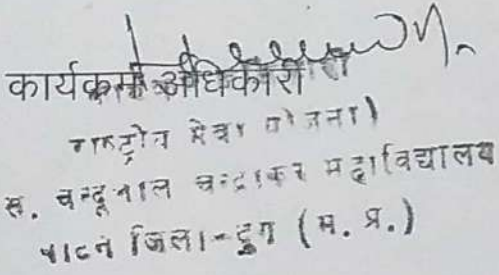 कार्यक्रम अधिकारी
राष्ट्रीय सेवा योजना)
स. चन्दूलाल चन्द्राकर महाविद्यालय
पाटन जिला-दुर्ग (म. प्र.)